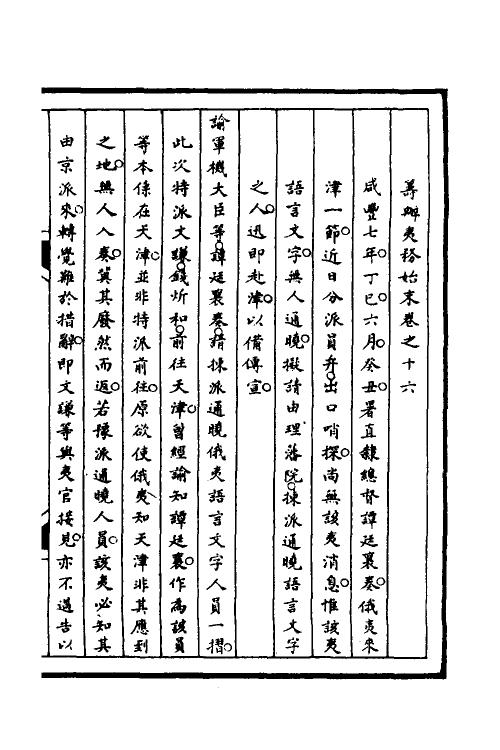 籌辦夷務始末卷之十六
咸豐七年丁巳六月癸丑署直隸總督譚廷襄奏俄夷來
津一節近日分派員弁出口哨探尚無該夷消息惟該夷
語言文字無人通曉擬請由理藩院揀派通曉語言文字
之人迅即赴津以備傳宣
諭軍機大臣等譚廷襄奏請揀派通曉俄夷語言文字人員一摺
此次特派文謙錢炘和前往天津曾經諭知譚廷襄作為該員
等本係在天津並非特派前往原欲使俄夷知天津非其應到
之地無人入奏冀其廢然而返若據派通曉人員該夷必知其
由京派來轉覺難於措辭即文謙等與夷官接見亦不過告以